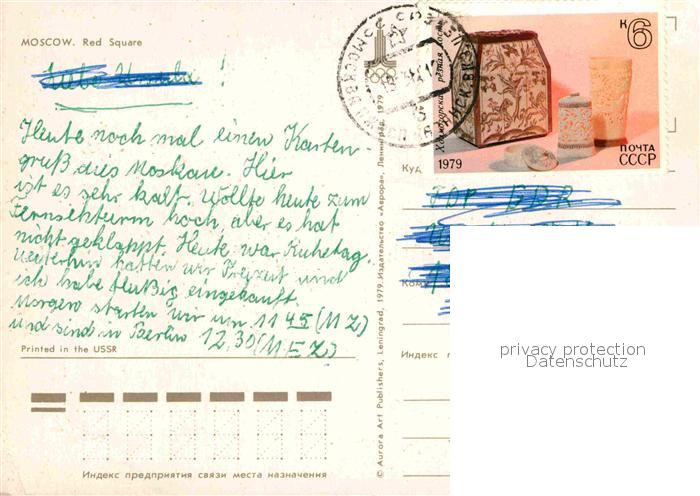 MOSCOW. Red Square
!
Heute noch mal einen Karten-
gruß aus Moskau. Hier
ist es sehr kalt. Wollte heute zum
Fernsehturm hoch, aber es hat
nicht geklappt. Heute war Ruhetag.
Weiterhin hatten wir Freizeit und
ich habe fleißig eingekauft.
Morgen starten wir um 11 45 (MZ)
und sind in Berlin 12.30 (MEZ)
Printed in the USSR
Индекс предприятия связи места назначения
© Aurora Art Publishers, Leningrad, 1979. Издательство «Аврора», Ленинград, 1979
Холмогорская резная кость
к6
1979
ПОЧТА
СССР
МОСКВА
Куд
DDR
Кому
Индекс п
privacy protection
Datenschutz